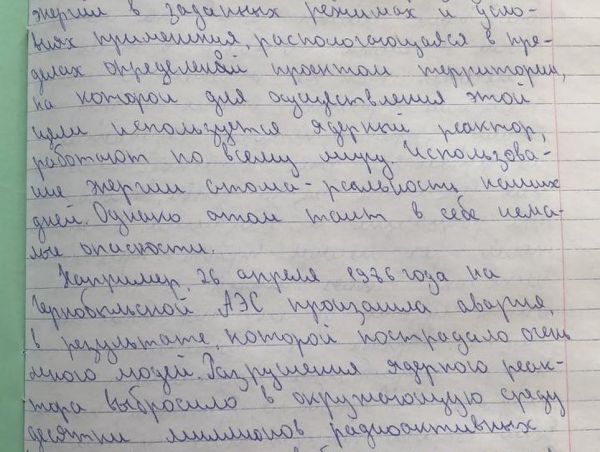 энергии в заданных режимах и усло-
виях применения, распологающаяся в пре-
делах определеной проектом территории,
на которой для осуществления этой
цели используется ядерный реактор,
работают по всему миру. Использова-
ние энергии атома - реальность наших
дней. Однако атом таит в себе нема-
лые опасности.
Например, 26 апреля 1986 года на
Чернобыльской АЭС произошла авария,
в результате, которой пострадало очень
много людей. Разрушения ядерного реак-
тора выбросило в окружающую среду
десятки миллионов радиоактивных